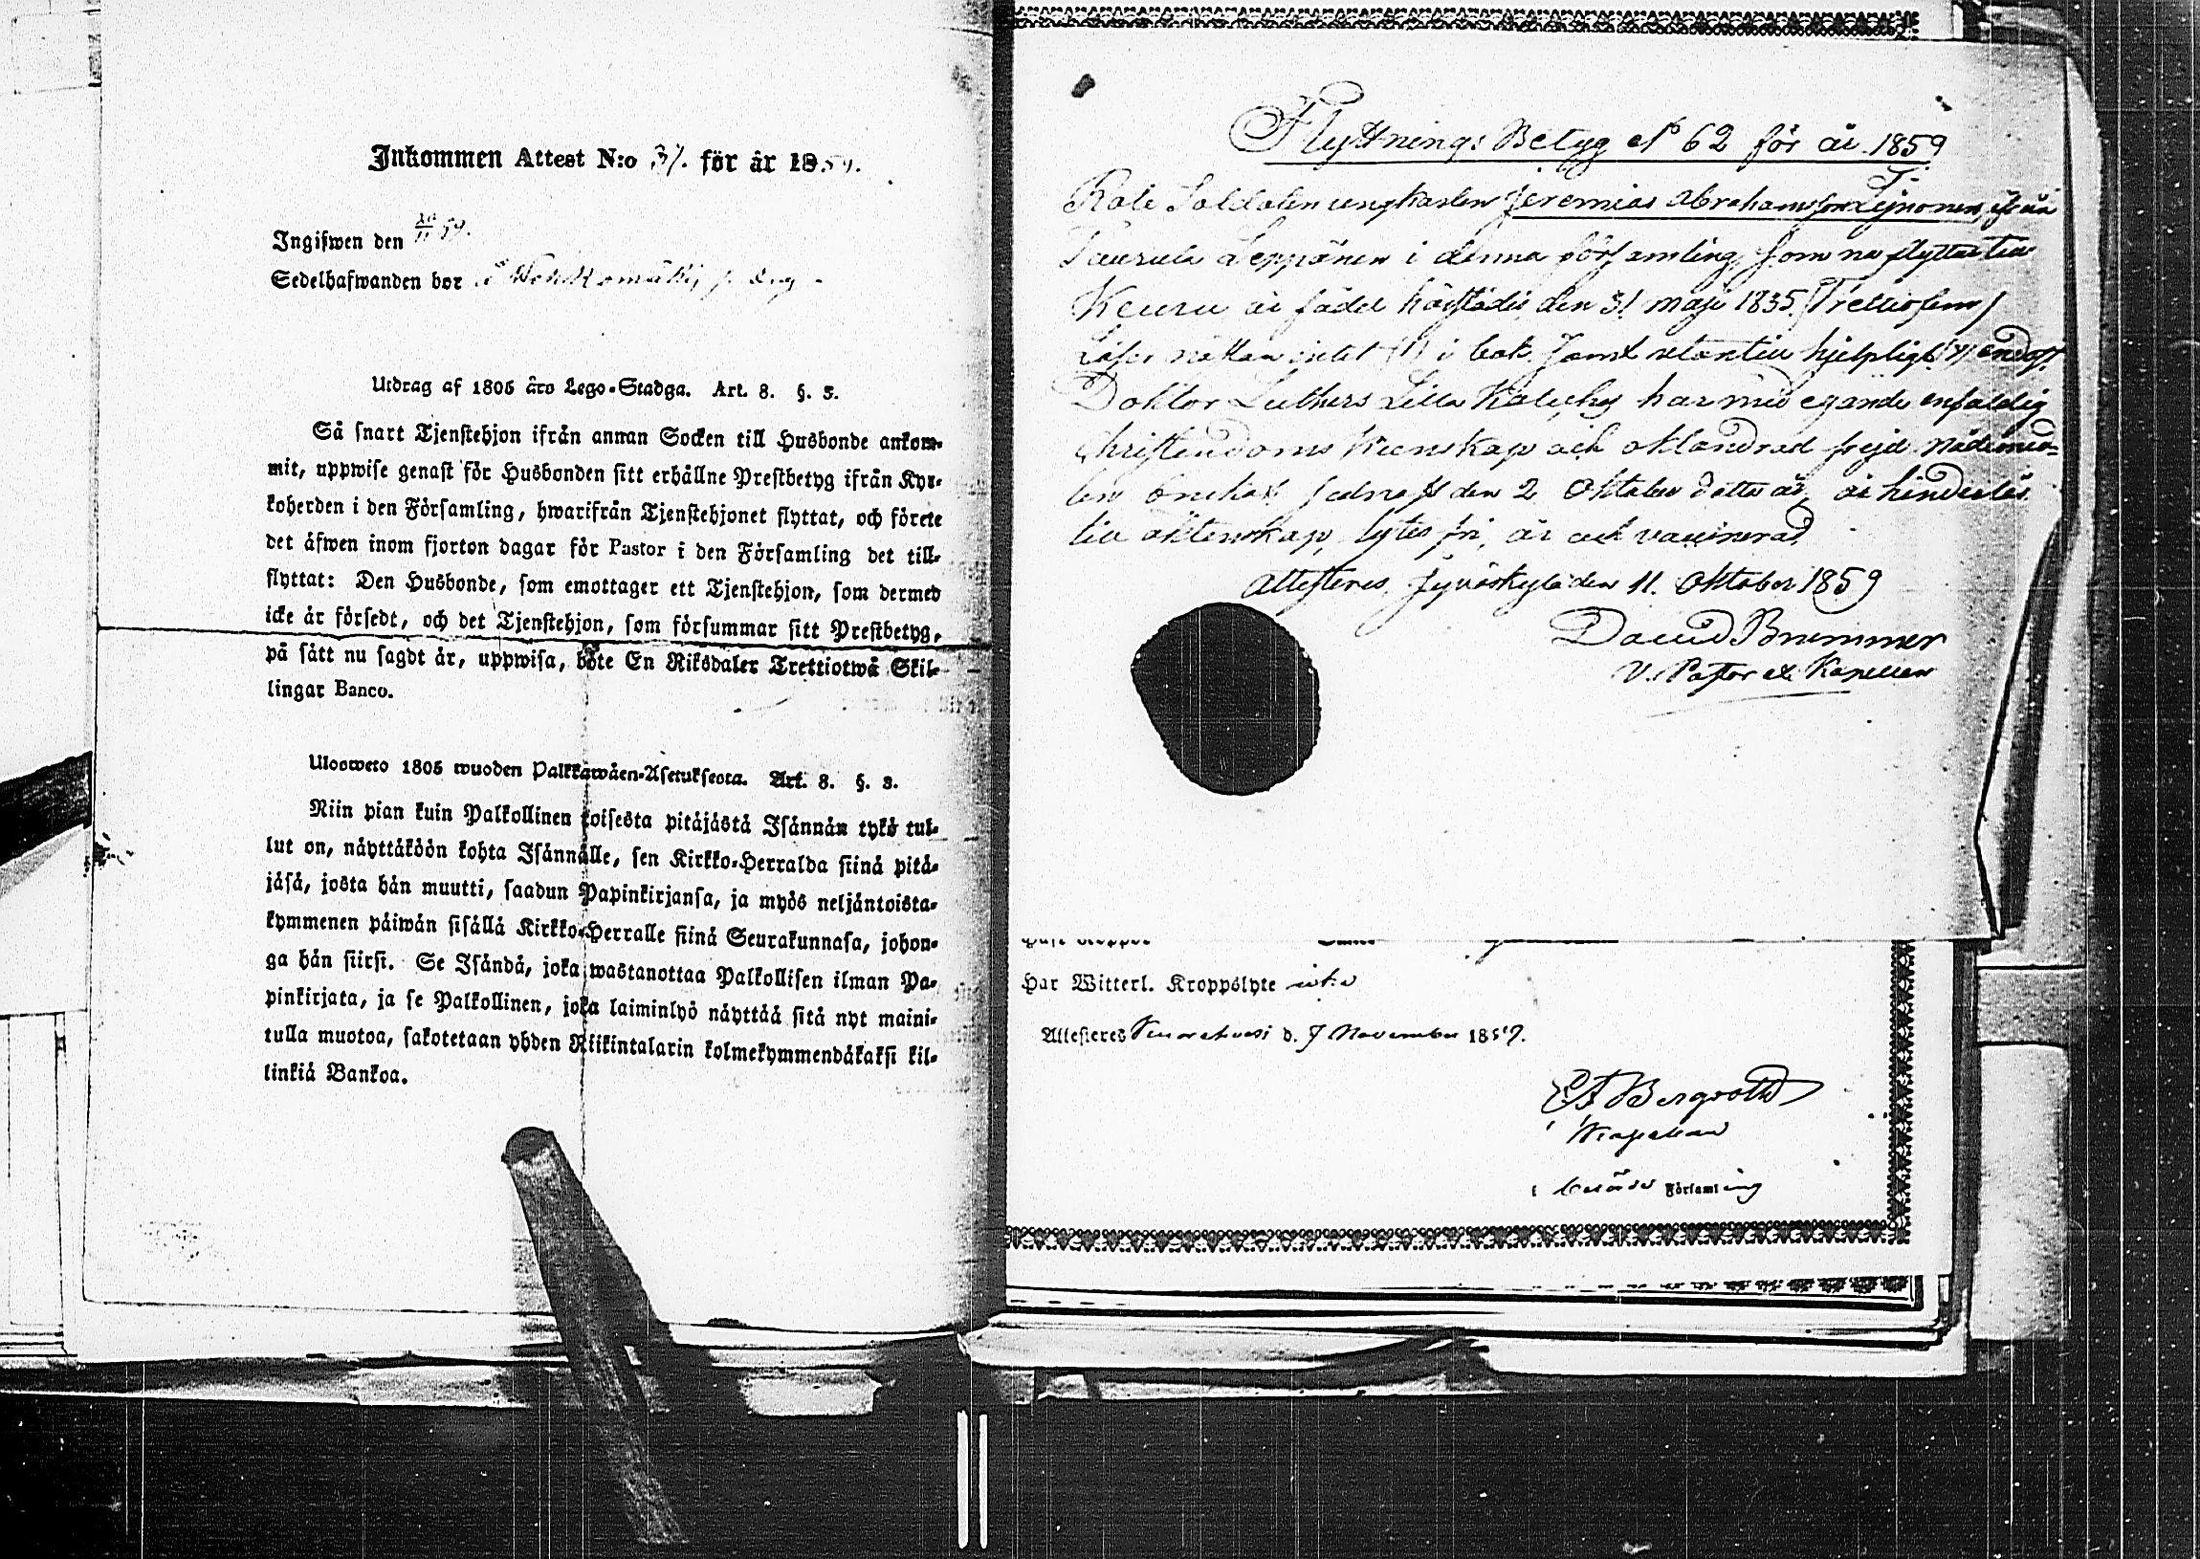 Inkommen Attest N:o 37. för år 1859.
Ingifwen den 20/11 59.
Sedelhafwanden bor
Utdrag af 1805 års Lego-Stadga. Art. 8. §. 3.
Så snart Tjenstehjon ifrån annan Socken till Husbonde ankom-
mit, uppwise genast för Husbonden sitt erhållne Prestbetyg ifrån Kyr-
koherden i den Församling, hwarifrån Tjenstehjonet flyttat, och förete
det äfwen inom fjorton dagar för Pastor i den Församling det till-
flyttat: Den Husbonde, som emottager ett Tjenstehjon, som dermed
icke är försedt, och det Tjenstehjon, som försummar sitt Prestbetyg,
på sätt nu sagdt är, uppwisa, böte En Riksdaler Trettiotwå Skil-
lingar Banco.
Ulosweto 1805 wuoden Palkkawäen-Asetuksesta. Art. 8. §. 3.
Niin pian kuin Palkollinen toisesta pitäjästä Isännän tykö tul-
lut on, näyttäköön kohta Isännälle, sen Kirkko-Herralda siinä pitä-
jäsä, josta hän muutti, saadun Papinkirjansa, ja myös neljäntoista-
kymmenen päiwän sisällä Kirkko-Herralle siinä Seurakunnasa, johon-
ga hän siirsi. Se Isändä, joka wastanottaa Palkollisen ilman Pa-
pinkirjata, ja se Palkollinen, joka laiminlyö näyttää sitä nyt maini-
tulla muotoa, sakotetaan yhden Riikintalarin kolmekymmendäkaksi kil-
linkiä Bankoa.
Flyttnings Betyg No 62 för år 1859
Rote Soldaten ungkarlen Jeremias Abrahamsson ifrån
Taurula Leppänen i denna församling, som nu flyttar till
Keuru är född härstädes den 31 Maji 1835 (Trettiofem)
Läser nöjaktigt i bok, samt utantill hjelpligt
Doktor Luthers Lilla Kateches har med egande enfaldig
Christendoms Kunskap och oklandrad frejd Nådemed-
len senast den 2 Oktober detta år, är hinderslös
till äktenskap, lytesfri, är ock vaccinerad.
Attesteras, Jyväskylä den 11. Oktober 1859
David Brummer
V. Pastor et Kapellan
Har Witterl. Kroppslyte
Attesteres d. 7 November 1859.
Bergroth
Kapellan
Församling